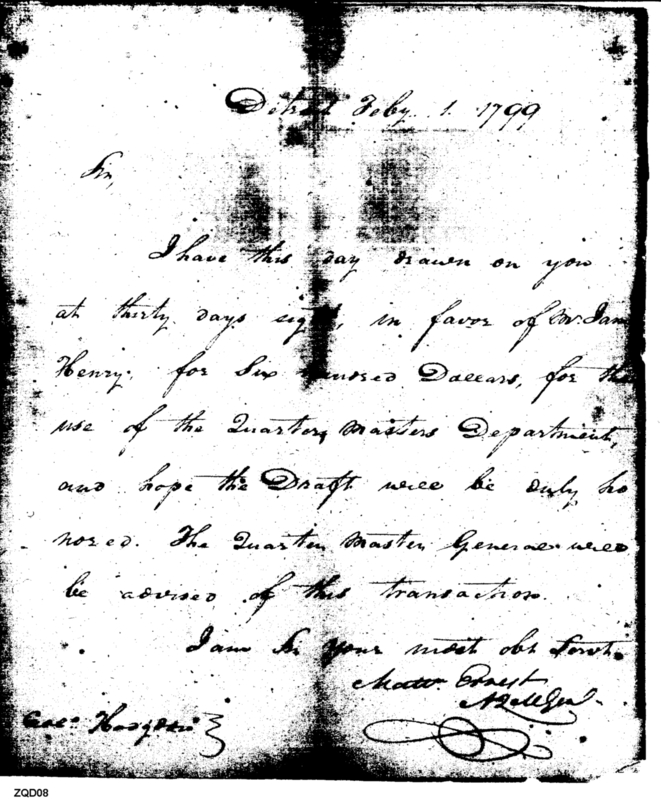 Detroit Feby. 1. 1799
Sir,
I have this day drawn on you
at thirty days sight, in favor of Mr. Jam
Henry, for Six hundred Dollars, for the
use of the Quarter Masters Department,
and hope the Draft will be duly ho
nored. The Quarter Master General will
be advised of this transaction.
I am Sir your most obt Servt.
Mattw. Ernest
AQMGenl.
Hodgdon
ZQD08